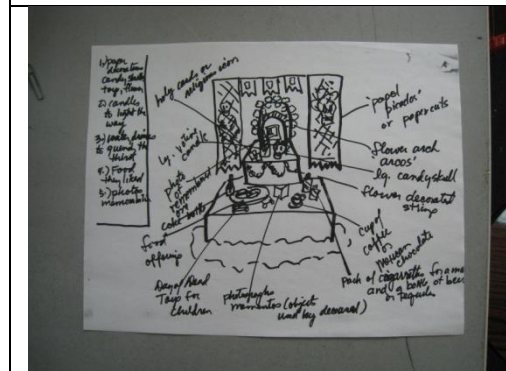 1.) papr
decorations
candy skulls
toys, 
2) candles
to light the
way
3.) water, drinks
to quench the
thirst
4.) Food
they liked
5.) photos
memorabilia
holy cards or
religious icon
lg. votive
candle
photo
of
one
remembered
coke bottle
food
offering
Day of Dead
Toys for
children
photographs
mementos (object
used by deceased)
'papel
picados'
or papercuts
flower arch
'arcos'
lg. candy skull
flower decorated
string
cup of
coffee
or
mexican
chocolate
Pack of cigarettes for a man
and a bottle of beer
or tequila